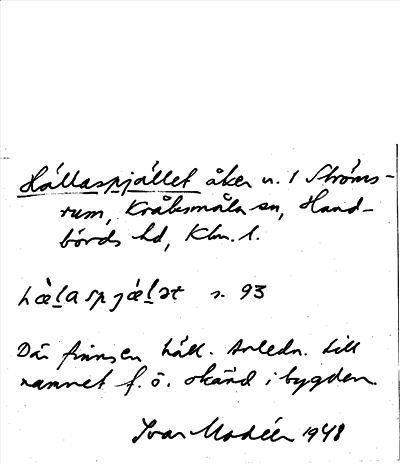 Hällaspjället åker n. 1 Ströms-
rum, Kråksmåla sn, Hand-
börds hd, Klm. l.
hæ̀ḷaspjǽḷət s. 93
Där finns en häll. Anledn. till
namnet f. ö. okänd i bygden.
Ivar Modéer 1948